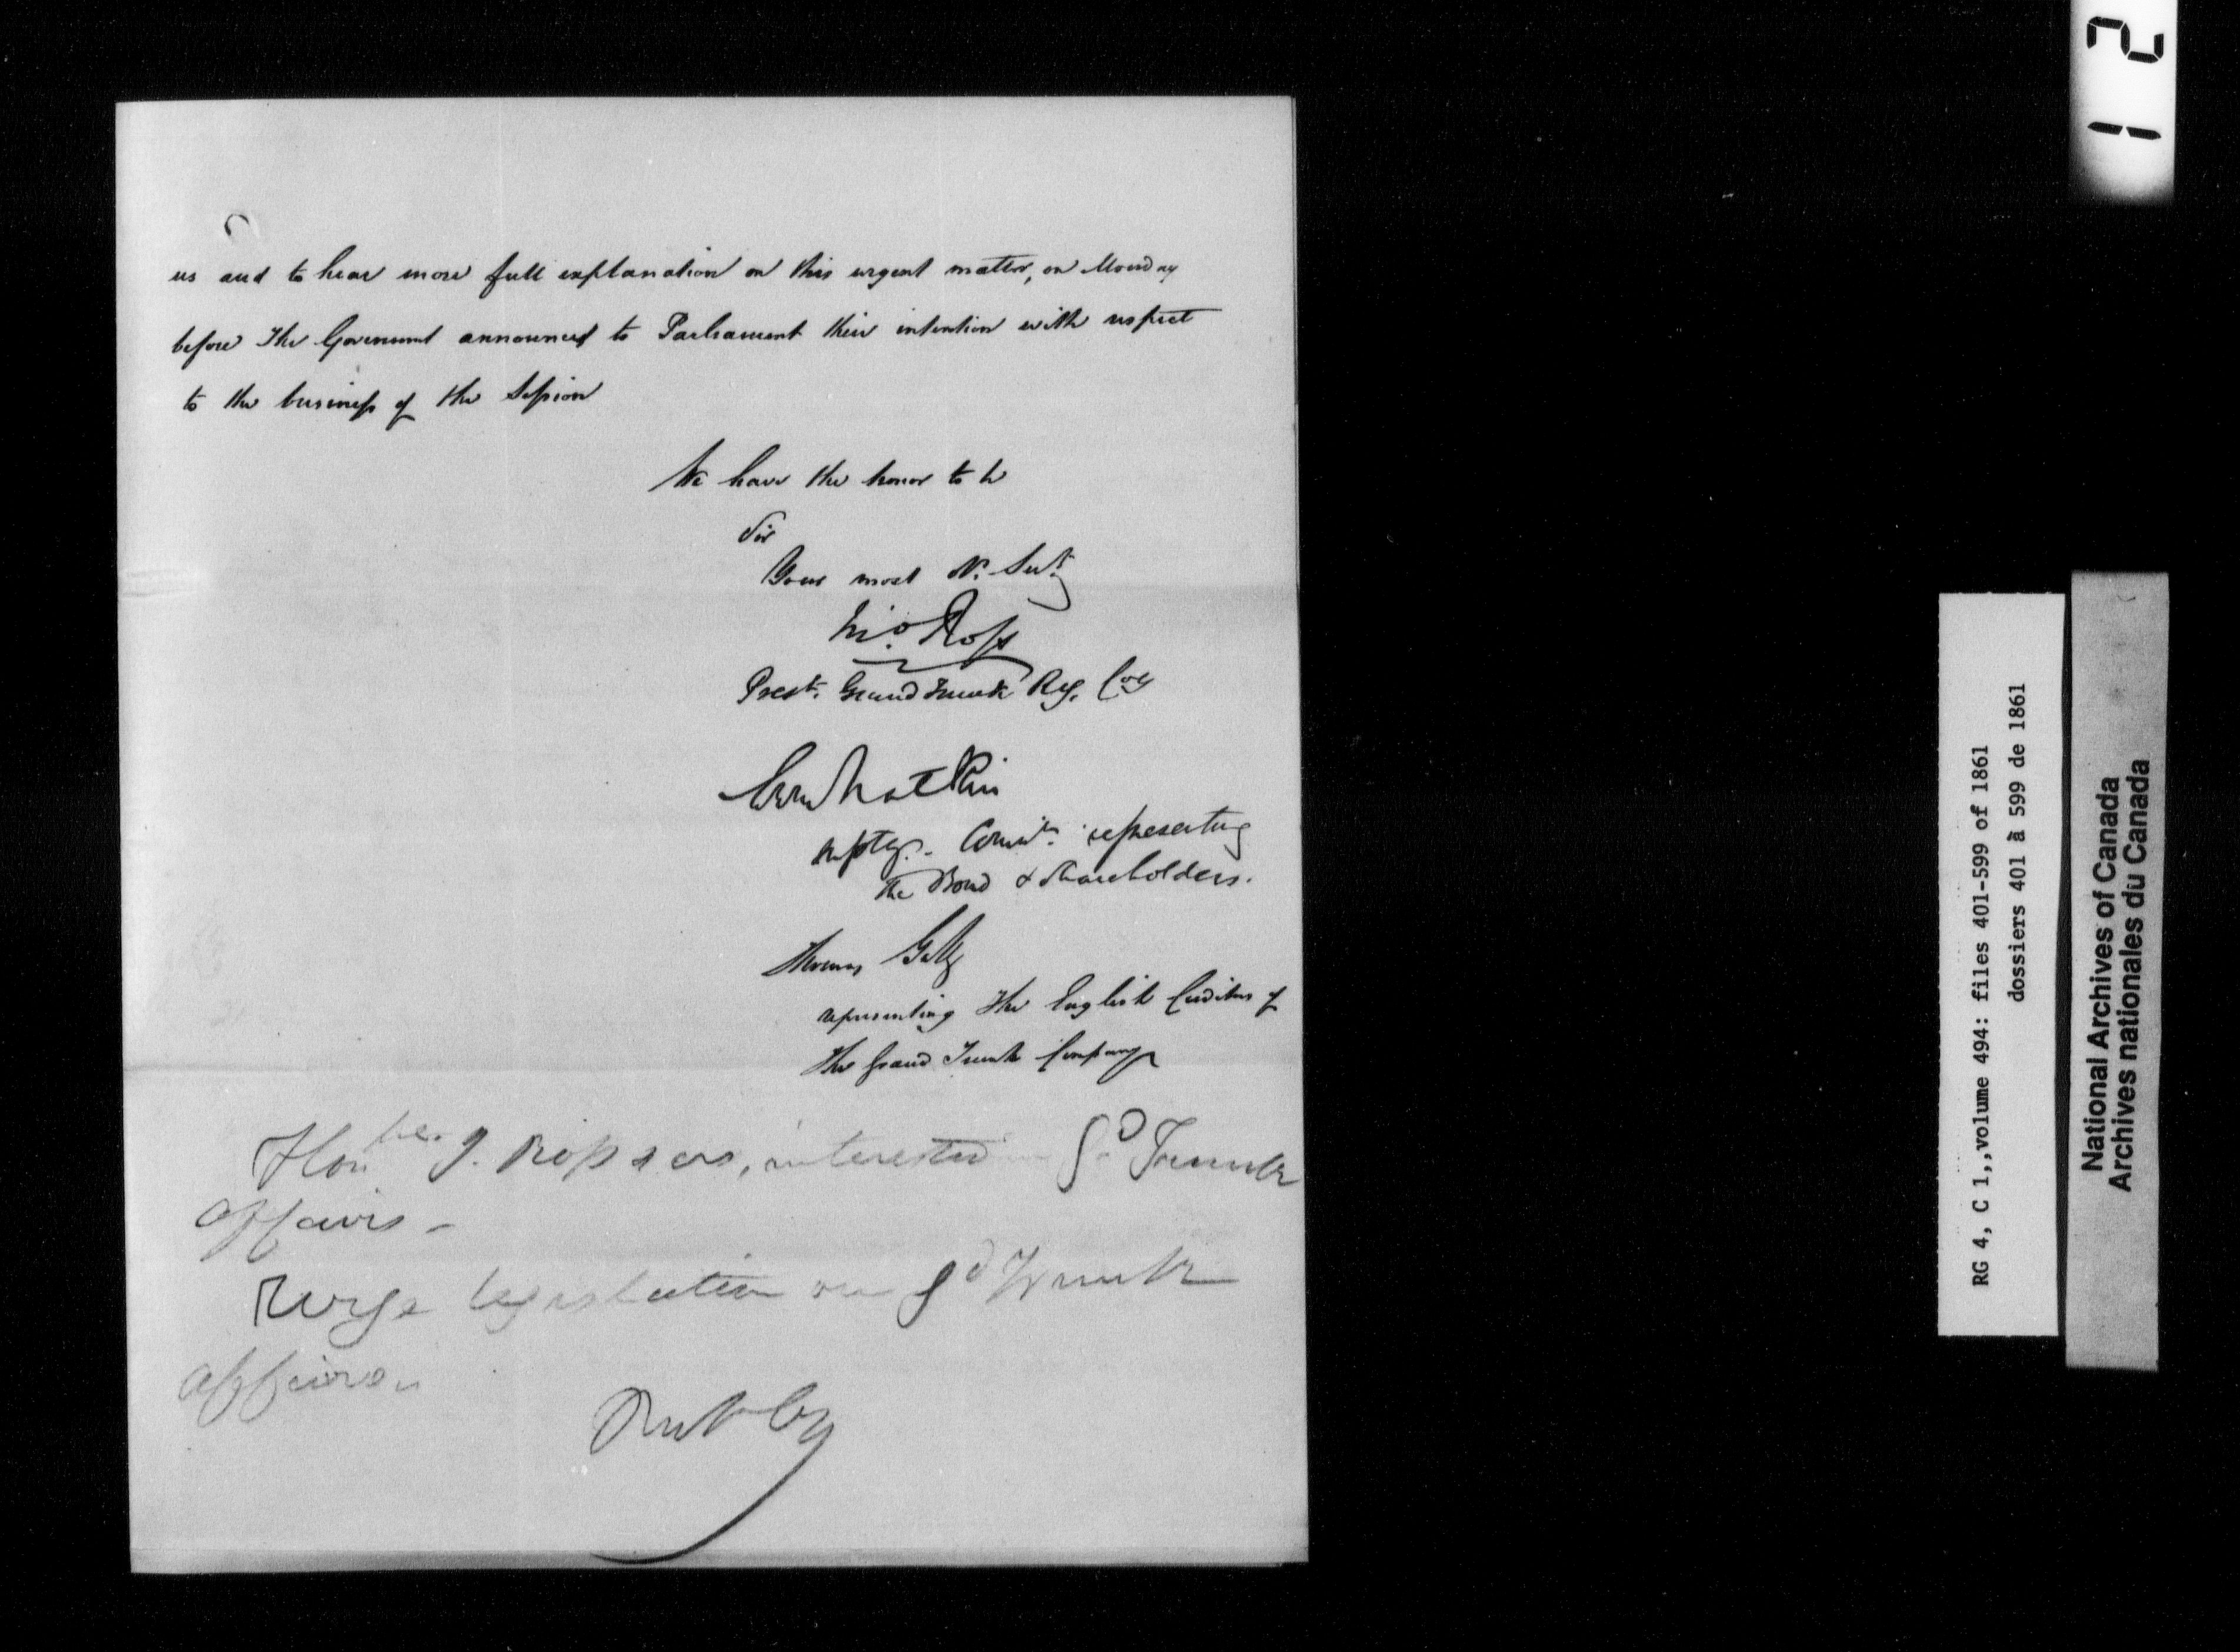 us and to hear more full explanation on this urgent matter, on Monday
before The Government announced to Parliament their intention with respect
to the business of the Session
We have the honor to be
Sir
Your most Obt. Servt.
Jno Ross
Prest. Grand Trunk Ry. Coy
EW Watkin
representing
the Bond & Shareholders.
Thomas Galt
representing the English Creditors of
the Grand Trunk Company
Honble. J. Ross & ors, interested in Gd Trunk
affairs -
Urge legislation on Gd Trunk
affairs
12
RG 4, C 1,,volume 494: files 401-599 of 1861
dossiers 401 à 599 de 1861
National Archives of Canada
Archives nationales du Canada